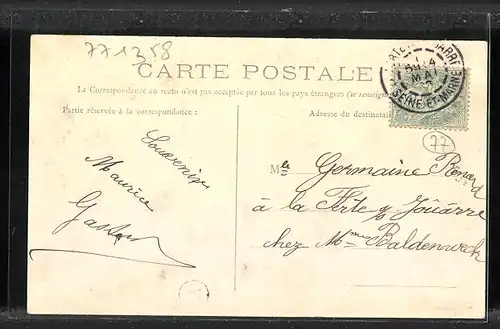 771358
CARTE POSTALE
La Correspondance au recto n'est pas acceptée par tous les pays étrangers (se renseign
Partie réservée à la correspondance :
Adresse du destinatai
MAI
SEINE-ET-MARNE
77
Souvenir
Maurice
Mlle Germaine Renard
à la Ferte s/ Jouarre
chez Mme Baldenweck